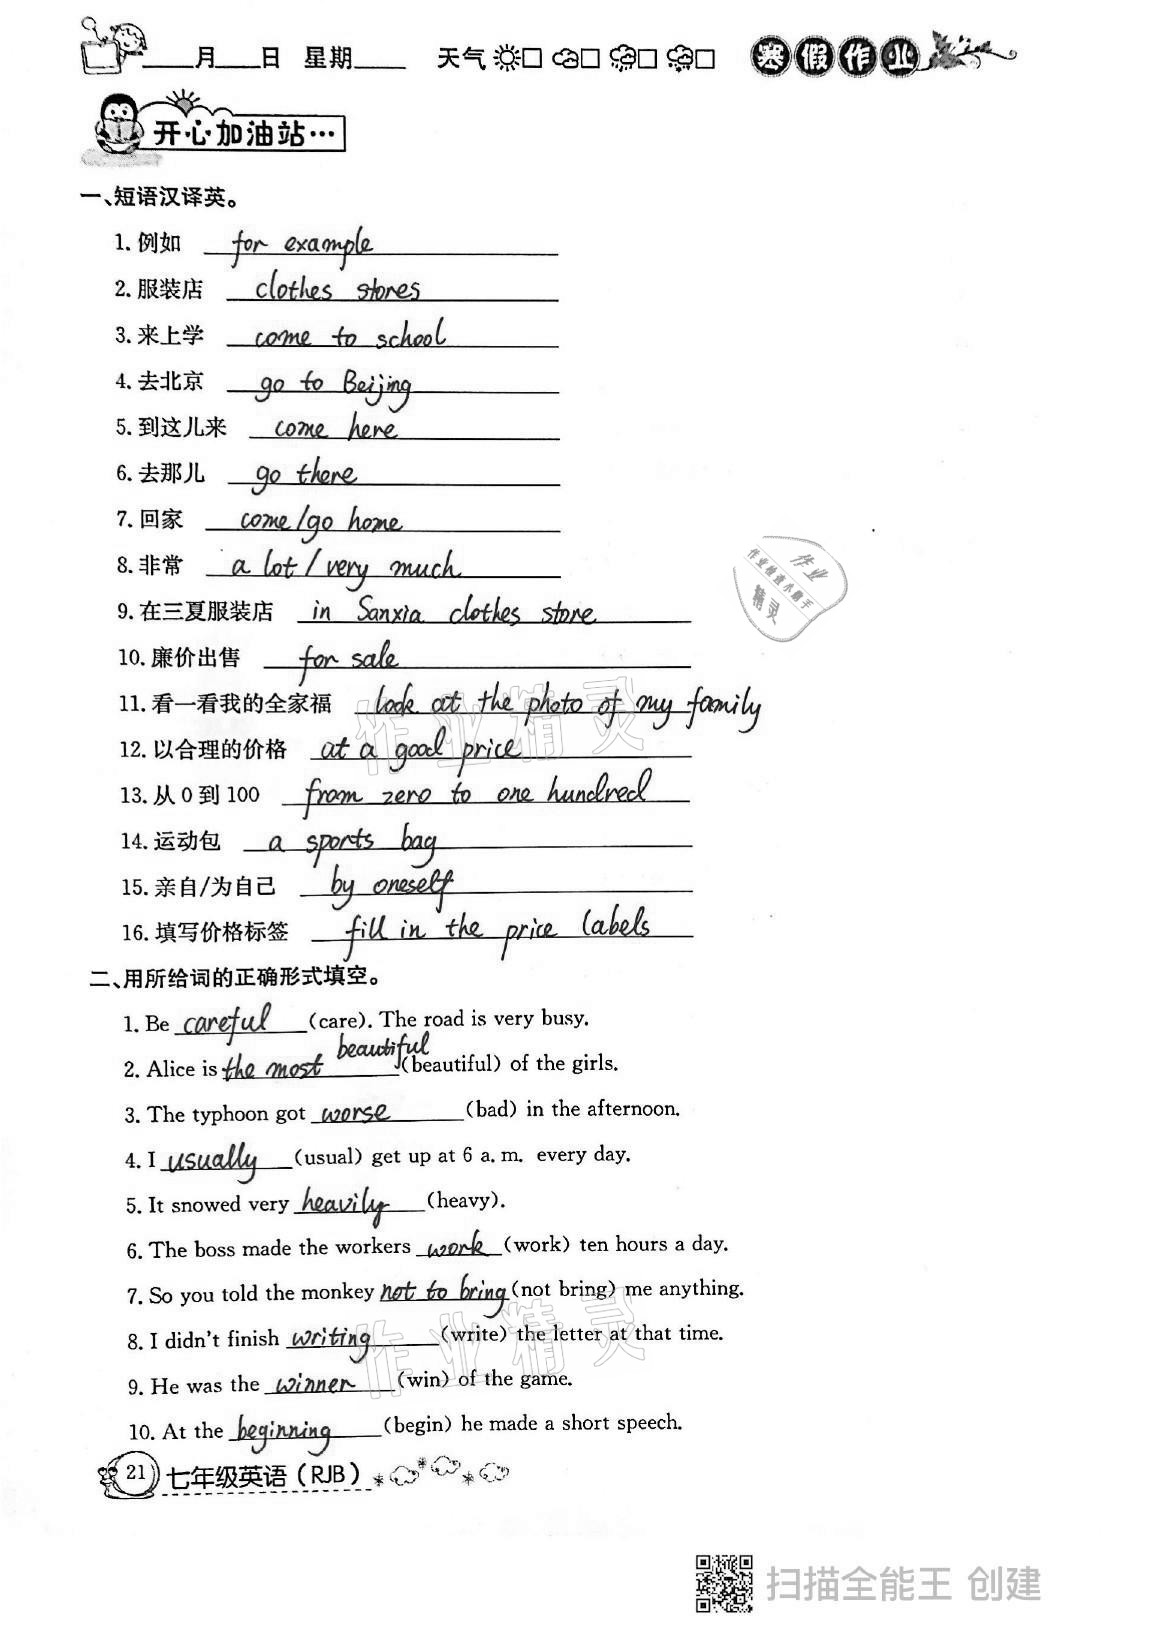 ____月____日 星期____ 天气 □ □ □ □ 寒假作业
开心加油站…
一、短语汉译英。
1. 例如 for example
2. 服装店 clothes stores
3. 来上学 come to school
4. 去北京 go to Beijing
5. 到这儿来 come here
6. 去那儿 go there
7. 回家 come/go home
8. 非常 a lot/very much
9. 在三夏服装店 in Sanxia clothes store
10. 廉价出售 for sale
11. 看一看我的全家福 look at the photo of my family
12. 以合理的价格 at a good price
13. 从 0 到 100 from zero to one hundred
14. 运动包 a sports bag
15. 亲自/为自己 by oneself
16. 填写价格标签 fill in the price labels
二、用所给词的正确形式填空。
1. Be careful (care). The road is very busy.
2. Alice is the most beautiful (beautiful) of the girls.
3. The typhoon got worse (bad) in the afternoon.
4. I usually (usual) get up at 6 a. m. every day.
5. It snowed very heavily (heavy).
6. The boss made the workers work (work) ten hours a day.
7. So you told the monkey not to bring (not bring) me anything.
8. I didn't finish writing (write) the letter at that time.
9. He was the winner (win) of the game.
10. At the beginning (begin) he made a short speech.
21 七年级英语(RJB)
作业
作业快速小助手
精灵
作业精灵
作业精灵
扫描全能王 创建